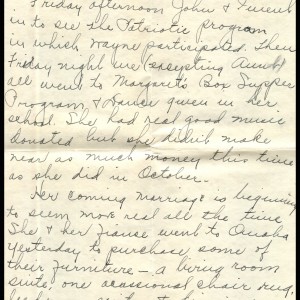 Friday afternoon John &
in to see the Patriotic program
in which Wayne participated. Then
Friday night we (excepting Aunt)
all went to Margaret's Box Supper
Program, & Dance given in her
school. She had real good music
donated but she didn't make
near as much money this time
as she did in October.
Her coming marriage is beginning
to seem more real all the time
She & her fiance went to Omaha
yesterday to purchase some of
their furniture – a living room
suite, one occasional chair, rug,